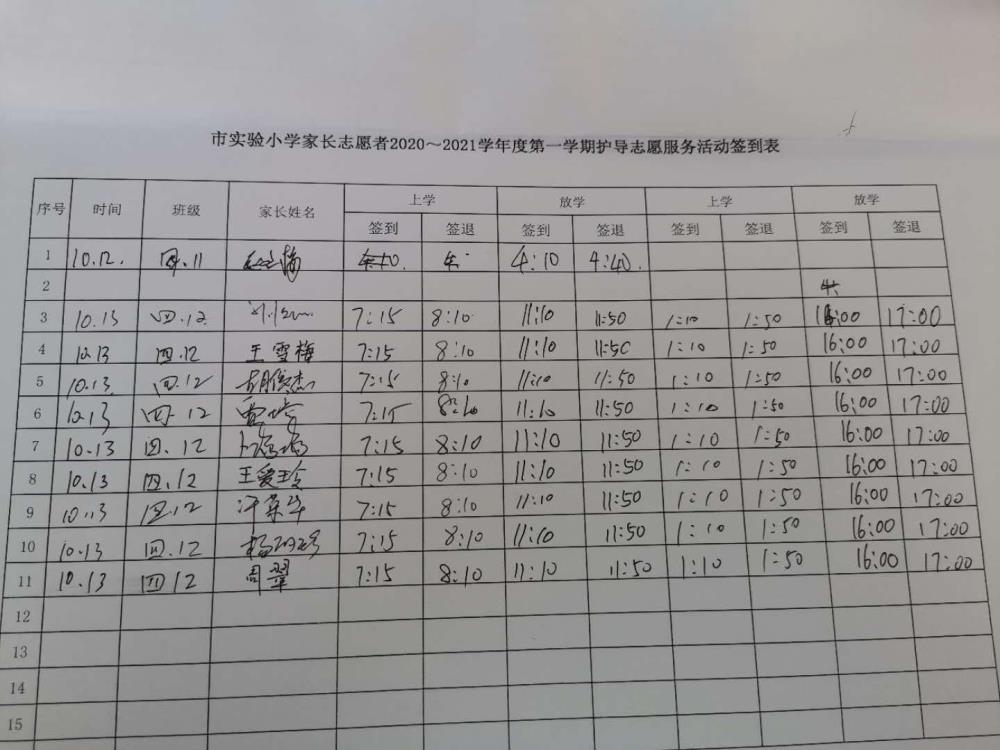 市实验小学家长志愿者2020～2021学年度第一学期护导志愿服务活动签到表
序号 时间 班级 家长姓名 上学 放学 上学 放学
签到 签退 签到 签退 签到 签退 签到 签退
1 10.12. 四.11 4:10 4:40.
2
3 10.13 四.12 7:15 8:10 11:10 11:50 1:10 1:50 16:00 17:00
4 10.13 四.12 王雪梅 7:15 8:10 11:10 11:50 1:10 1:50 16:00 17:00
5 10.13. 四.12 胡俊杰 7:15 8:10 11:10 11:50 1:10 1:50 16:00 17:00
6 10.13 四.12 7:15 8:10 11:10 11:50 1:10 1:50 16:00 17:00
7 10.13 四.12 7:15 8:10 11:10 11:50 1:10 1:50 16:00 17:00
8 10.13 四.12 王爱玲 7:15 8:10 11:10 11:50 1:10 1:50 16:00 17:00
9 10.13 四.12 7:15 8:10 11:10 11:50 1:10 1:50 16:00 17:00
10 10.13 四.12 7:15 8:10 11:10 11:50 1:10 1:50 16:00 17:00
11 10.13 四12 周翠 7:15 8:10 11:10 11:50 1:10 1:50 16:00 17:00
12
13
14
15